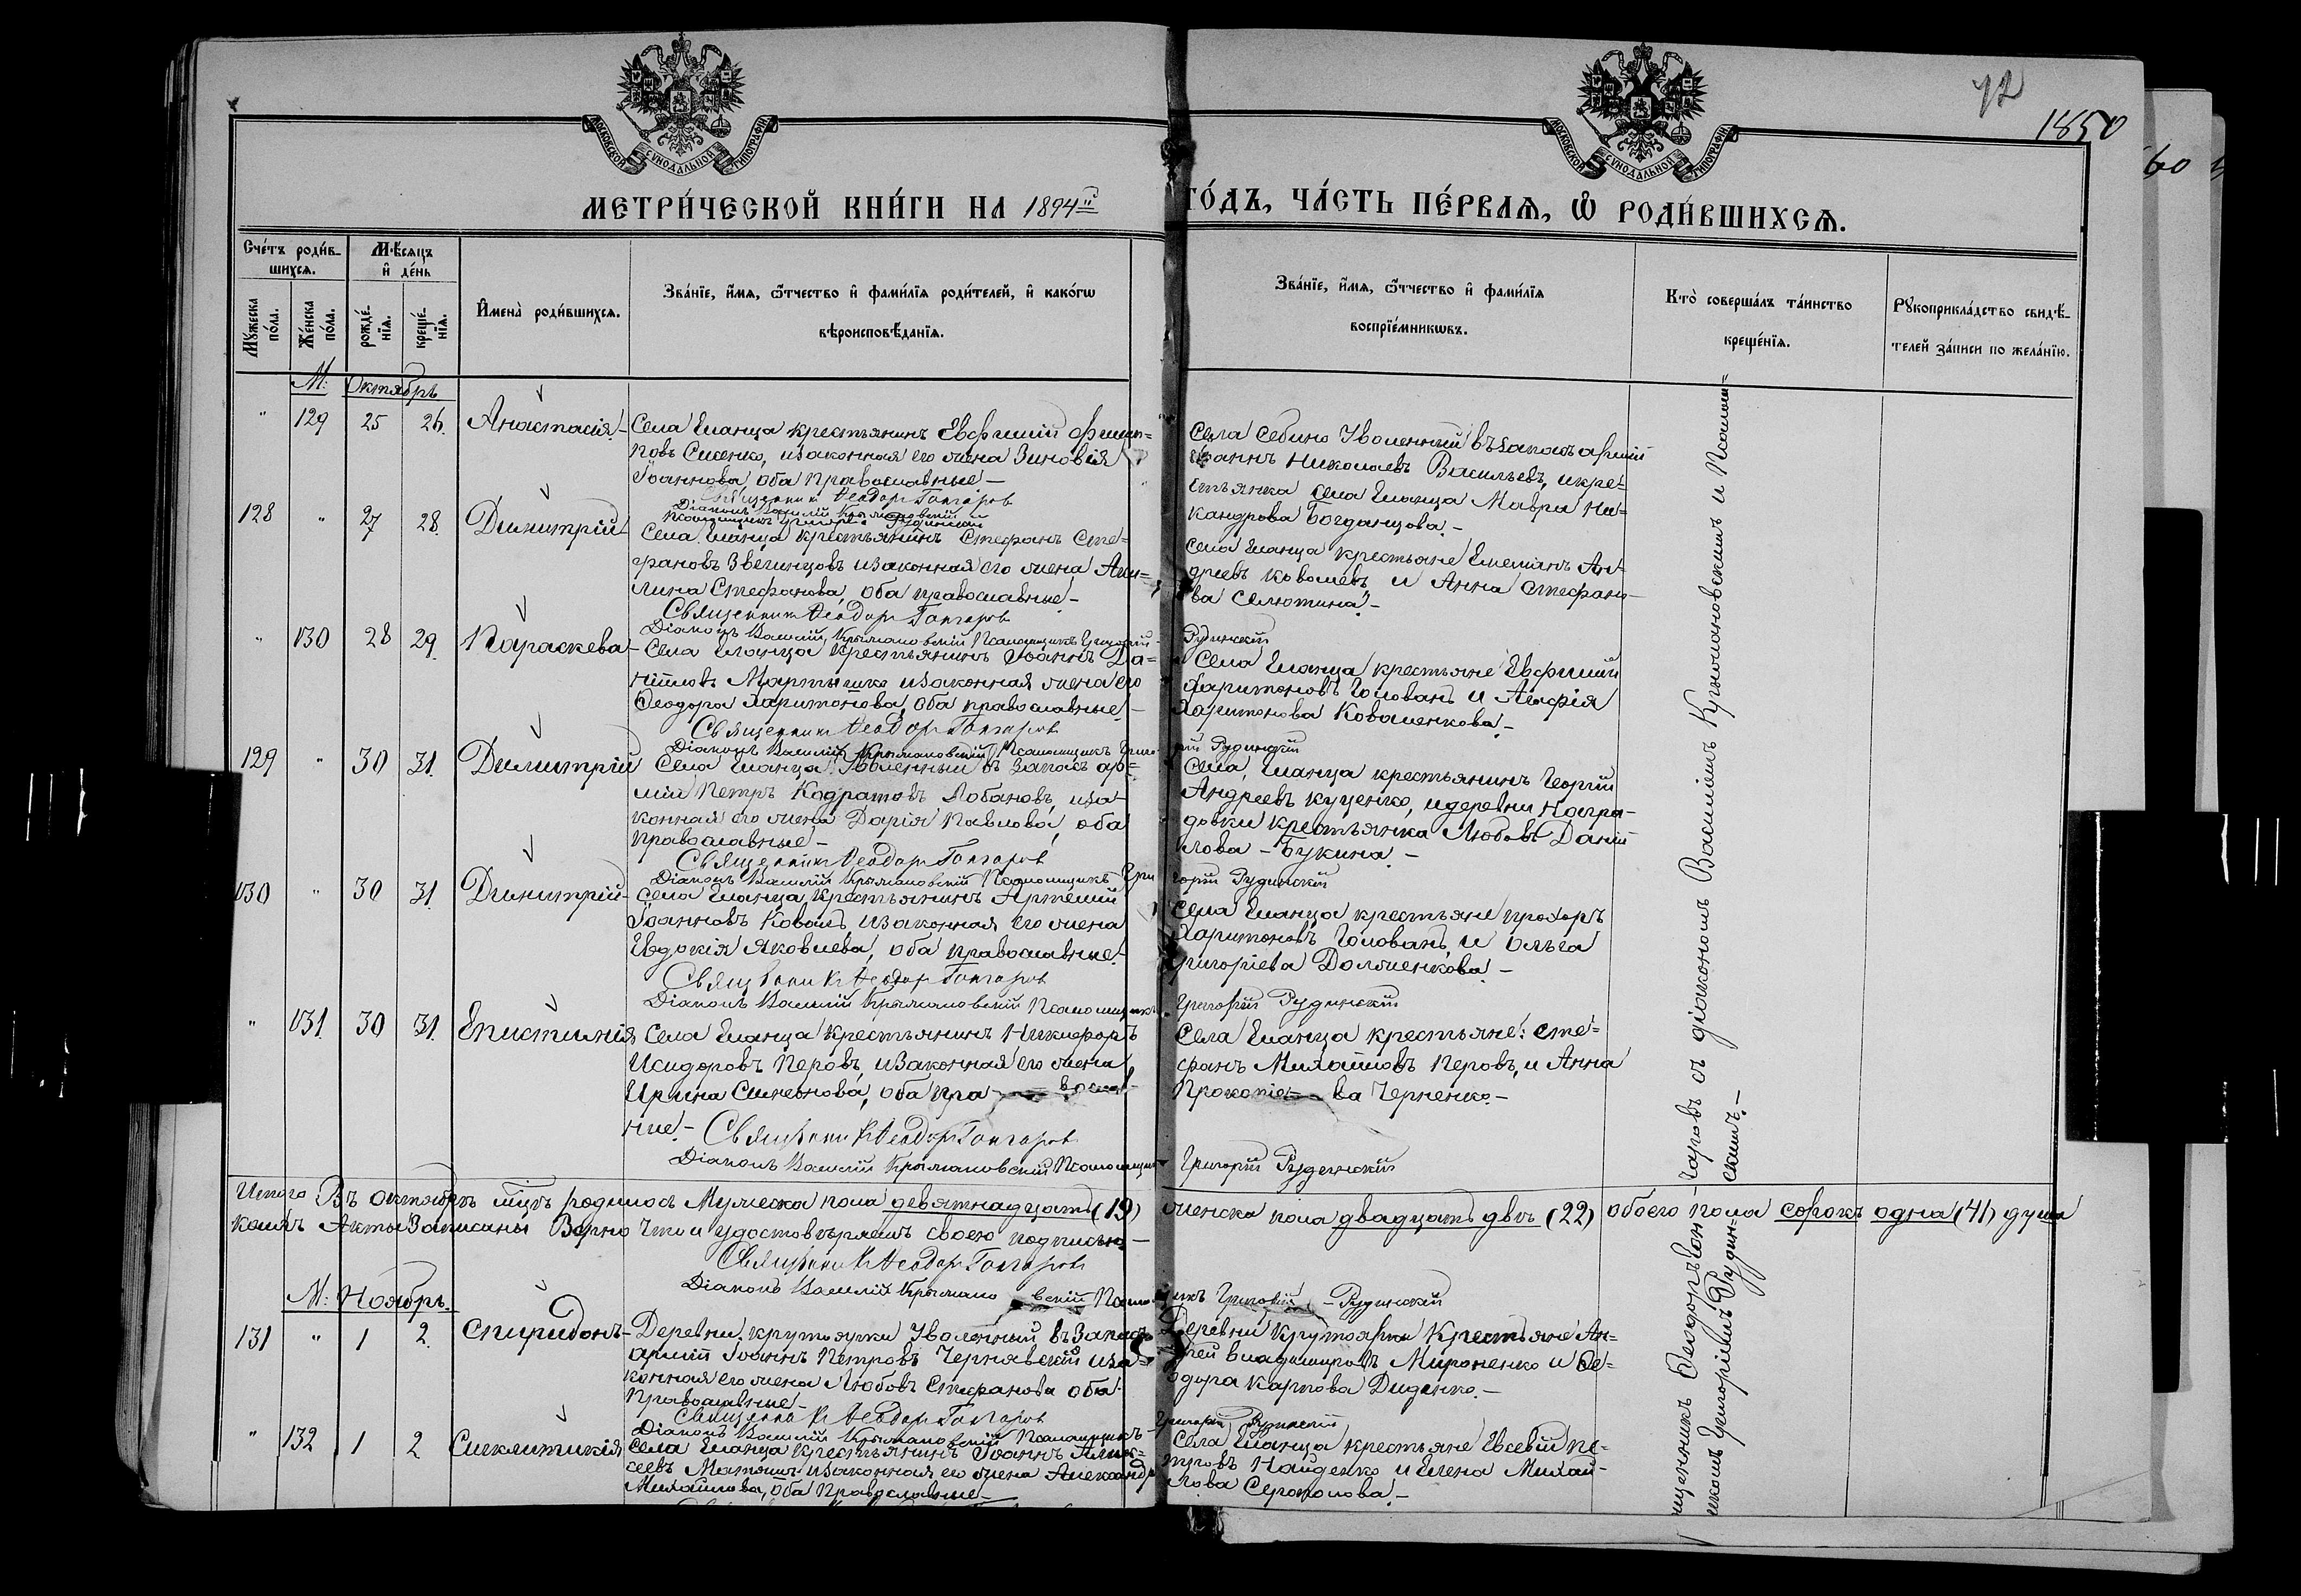 МОСКОВСКОЙ СѴНОДАЛЬНОЙ ТИПОГРАФІИ
МОСКОВСКОЙ СѴНОДАЛЬНОЙ ТИПОГРАФІИ
72
1850
МЕТРИ́ЧЕСКОЙ КНИ́ГИ НА 1894й ГО́ДЪ, ЧА́СТЬ ПЕ́РВАѦ, Ѽ РОДИ́ВШИХСѦ.
Сче́тъ роди́в-
шихсѧ.
Мꙋжеска по́ла.
Же́нска по́ла.
М҃ѣсѧцъ
и҆ де́нь
рожде́-
нїѧ.
креще́-
нїѧ.
И҆мена̀ роди́вшихсѧ.
Зва́нїе, и҆́мѧ, ѻ҆́тчество и҆ фами́лїѧ роди́телей, и҆ како́гѡ
вѣроисповѣ́данїѧ.
Зва́нїе, и҆́мѧ, ѻ҆́тчество и҆ фами́лїѧ
воспрїе́мникѡвъ.
Кто̀ соверша́лъ та́инство
креще́нїѧ.
Рꙋкоприкла́дство свидѣ́-
телей за́писи по жела́нїю.
М: Октябрь
" 129 25 26. Анастасія Села Еланца крестьянинъ Евфимій Филип=
повъ Сисенко, изаконная его жена Зиновія
Іоаннова, оба православные –
Священникъ Ѳеодоръ Гончаровъ
Діаконъ Василій Крыжановскій
Псаломщикъ Григорій Рудинскій
Села Себино Уволенный въ запасъ арміи
Іоаннъ Николаевъ Васильевъ, и кре=
стьянка села Еланца Мавра Ни=
кандрова Богданцова. –
128 " 27 28. Димитрій Села Еланца крестьянинъ Стефанъ Сте=
фановъ Звегинцовъ изаконная его жена Аки=
лина Стефанова, оба православные –
Священникъ Ѳеодоръ Гончаровъ
Діаконъ Василій Крыжановскій Псаломщикъ Григорій Рудинскій
Села Еланца крестьяне Емеліанъ Ан=
дреевъ Ковалевъ и Анна Стефано-
ва Селютина –
" 130 28 29. Параскева – Села Еланца крестьянинъ Іоаннъ Да=
ніиловъ Мартышко изаконная жена его
Ѳеодора Харитонова, оба православные –
Священникъ Ѳеодоръ Гончаровъ
Діаконъ Василій Крыжановскій Псаломщикъ Григорій Рудинскій
Села Еланца крестьяне Евфимій
Харитоновъ Голованъ и Агафія
Харитонова Коваленкова. –
129 " 30 31. Димитрій Села Еланца Уволенный въ запасъ ар=
міи Петръ Кодратовъ Лобановъ, иза=
конная его жена Дарія Павлова, оба
православные –
Священникъ Ѳеодоръ Гончаровъ
Діаконъ Василій Крыжановскій Псаломщикъ Григорій Рудинскій
Села Еланца крестьянинъ Георгій
Андреевъ Куценко, и деревни
крестьянка Любовь Даніи
лова – Букина. –
130 " 30 31. Димитрій – Села Еланца крестьянинъ Артемій
Іоанновъ Коваль, изаконная его жена
Евдокія Яковлева, оба православные –
Священникъ Ѳеодоръ Гончаровъ
Діаконъ Василій Крыжановскій Псаломщикъ Григорій Рудинскій
Села Еланца крестьяне Прохоръ
Харитоновъ Голованъ, и Ольга
Григоріева Долженкова. –
" 131. 30 31. Епистимія Села Еланца крестьянинъ Никифоръ
Исидоровъ Перовъ, изаконная его жена
Ирина Симеонова, оба пра – восла=
ные. – Священникъ Ѳеодоръ Гончаровъ
Діаконъ Василій Крыжановскій Псаломщикъ Григорій Рудинскій
Села Еланца крестьяне: Сте=
фанъ Михаиловъ Перовъ, и Анна
Прокопіе – ва Черненко. –
Итого Въ октябрѣ мцѣ родилось Мужеска пола девятнадцать (19) женска пола двадцать двѣ (22) обоего пола сорокъ одна (41) душа
Акты Записаны Вѣрно Что и удостовѣряемъ своею подписью –
Священникъ Ѳеодоръ Гончаровъ
Діаконъ Василій Крыжано вскій Псаломщикъ Григорій – Рудинскій
М: Ноябрь.
131 " 1 2. Спиридонъ – Деревни Крутоярки Уволенный въ Запасъ
арміи Іоаннъ Петровъ Чернявскій иза=
конная его жена Любовь Стефанова оба
Православные –
Священникъ Ѳеодоръ Гончаровъ
Діаконъ Василій Крыжановскій Псаломщикъ Григорій Рудинскій
Деревни Крутоярки Крестьяне Ан=
дрей Владиміровъ Мироненко и Ѳе=
одора Карпова Диденко. –
" 132 1 2 Сигклитикія Села Еланца крестьянинъ Іоаннъ Алек=
сеевъ изаконная его жена Александра
Михаилова, оба Православные –
Села Еланца крестьяне Евсевій Пе=
тровъ Найденко и Елена Михаи-
лова –
Священникъ Ѳеодоръ Гончаровъ съ діакономъ Василіемъ Крыжановскимъ и Псалом=
щикомъ Григоріемъ Рудин=скимъ. –